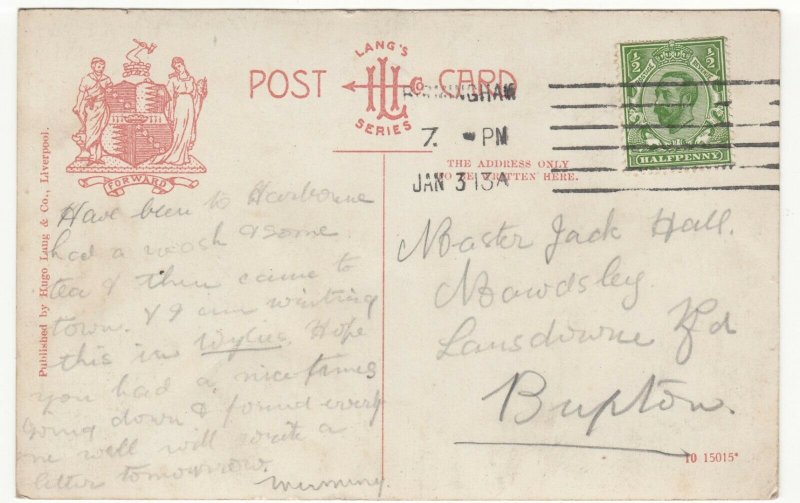 LANG'S
POST CARD
LHCo
SERIES
BIRMINGHAM
7. - PM
JAN 3 13A
½ ½
HALFPENNY
FORWARD
Published by Hugo Lang & Co., Liverpool.
THE ADDRESS ONLY
TO BE WRITTEN HERE.
Have been to Harborne
had a wash & some
tea & then came to
town. & I am writing
this in Hope
you had a nice
going down & found every
one well will write a
letter tomorrow.
Master Jack Hall.
Mawdsley
Lansdowne Rd
Buxton.
10 15015*